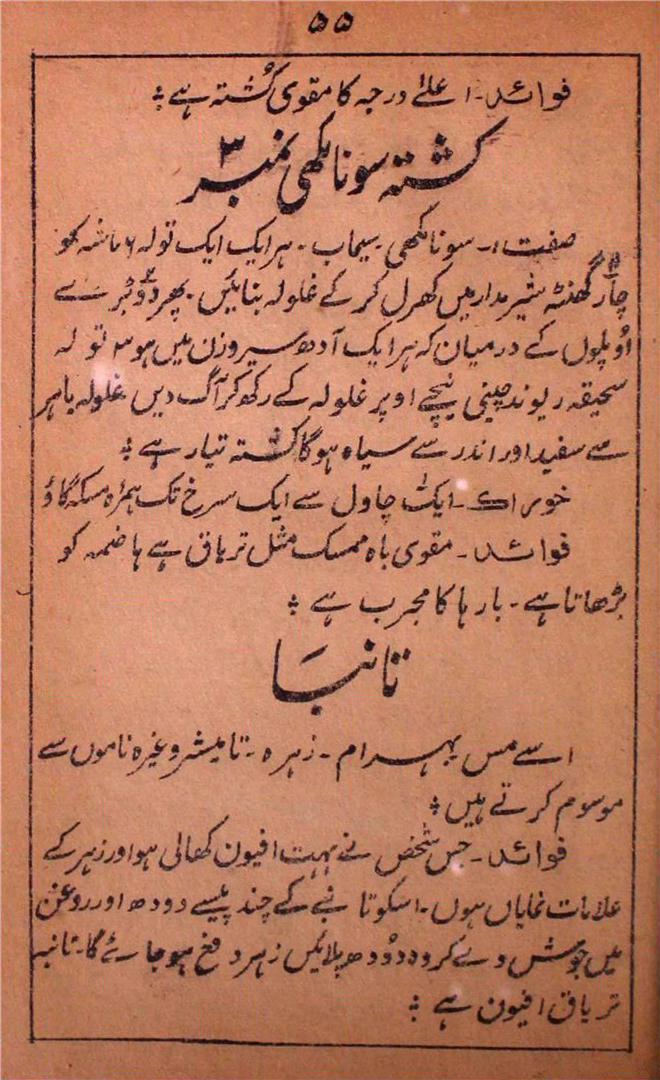 ۵۵
فوائد۔ اعلےٰ درجہ کا مقوی کُشتہ ہے ؞
کشتہ سونا مکھی نمبر ۳
صفت:۔ سونا مکھی سیماب۔ ہر ایک ایک تولہ ۶ ماشہ کو
چار گھنٹہ شیر مدار میں کھرل کر کے غلولہ بنائیں۔ پھر دو بڑے
اُوپلوں کے درمیان کہ ہر ایک آدھ سیر وزن میں ہو ۳ تولہ
سحیقہ ریوند چینی نیچے اوپر غلولہ کے رکھ کر آگ دیں غلولہ باہر
سے سفید اور اندر سے سیاہ ہوگا کشتہ تیار ہے ؞
خوراک۔ ایک چاول سے ایک سرخ تک ہمراہ مسکہ گاؤ
فوائد۔ مقوی باہ ممسک مثل تریاق ہے ہاضمہ کو
بڑھاتا ہے۔ بارہا کا مجرب ہے ؞
تانبَا
اسے مس بہرام۔ زہرہ۔ تامیشر وغیرہ ناموں سے
موسوم کرتے ہیں ؞
فوائد۔ جس شخص نے بہت افیون کھالی ہو اور زہر کے
علامات نمایاں ہوں۔ اسکو تانبے کے چند پیسے دودھ اور روغن
میں جوش دے کر وہ دُودھ پلائیں زہر دفع ہو جائے گا۔ تانبہ
تریاق افیون ہے ؞